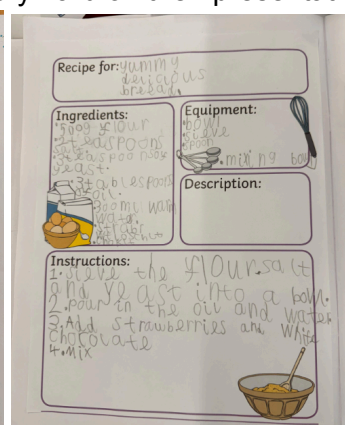 Recipe for: yummy
delicious
bread.
Ingredients:
•500g flour
•2teaspoons
salt.
yeast.
•3tablespoons
oil.
•300ml warm
water.
Equipment:
•bowl
sieve
spoon
•mixing bowl
Description:
Instructions:
1.sieve the flour.salt
and yeast into a bowl.
2.pour in the oil and water
3.Add strawberries and white
chocolate
4.mix